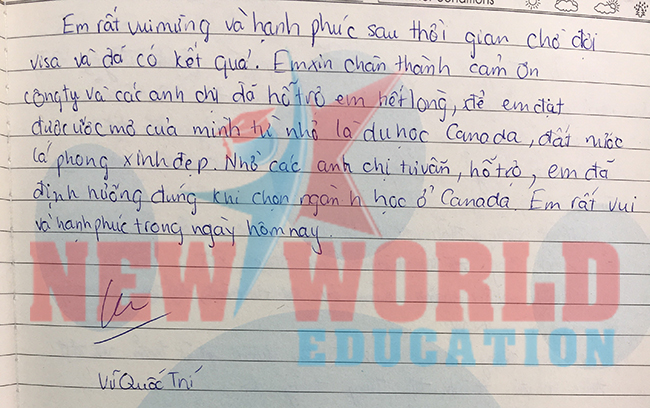 Conditions
Em rất vui mừng và hạnh phúc sau thời gian chờ đợi
visa và đã có kết quả. Em xin chân thành cảm ơn
công ty và các anh chị đã hỗ trợ em hết lòng, để em đạt
được ước mơ của mình từ nhỏ là du học Canada, đất nước
lá phong xinh đẹp. Nhờ các anh chị tư vấn, hỗ trợ, em đã
định hướng đúng khi chọn ngành học ở Canada. Em rất vui
và hạnh phúc trong ngày hôm nay.
NEW WORLD
EDUCATION
Vũ Quốc Trí